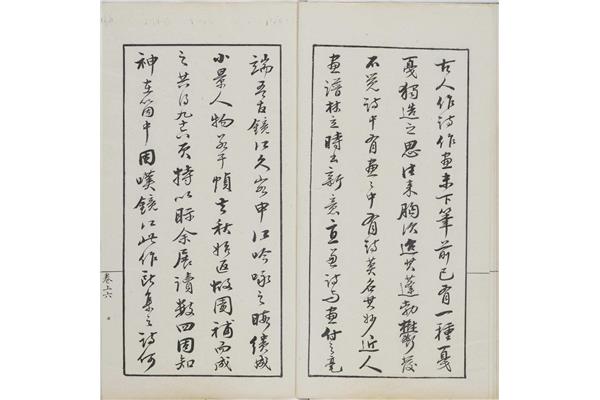 古人作詩作畫未下筆前已有一種戛
戛獨造之思往來胸次迨其蓬勃鬱發
不覺詩中有畫〻中有詩莫名其妙近人
畫譜林立時出新意詩与畫付之毫
端吾友鏡江久客申江吟咏之暇績成
小景人物若干幀去秋始返故園補而成
之共得九十六頁特以眎余展讀數四固知
神在箇中因嘆鏡江此作集之詩何
卷上六